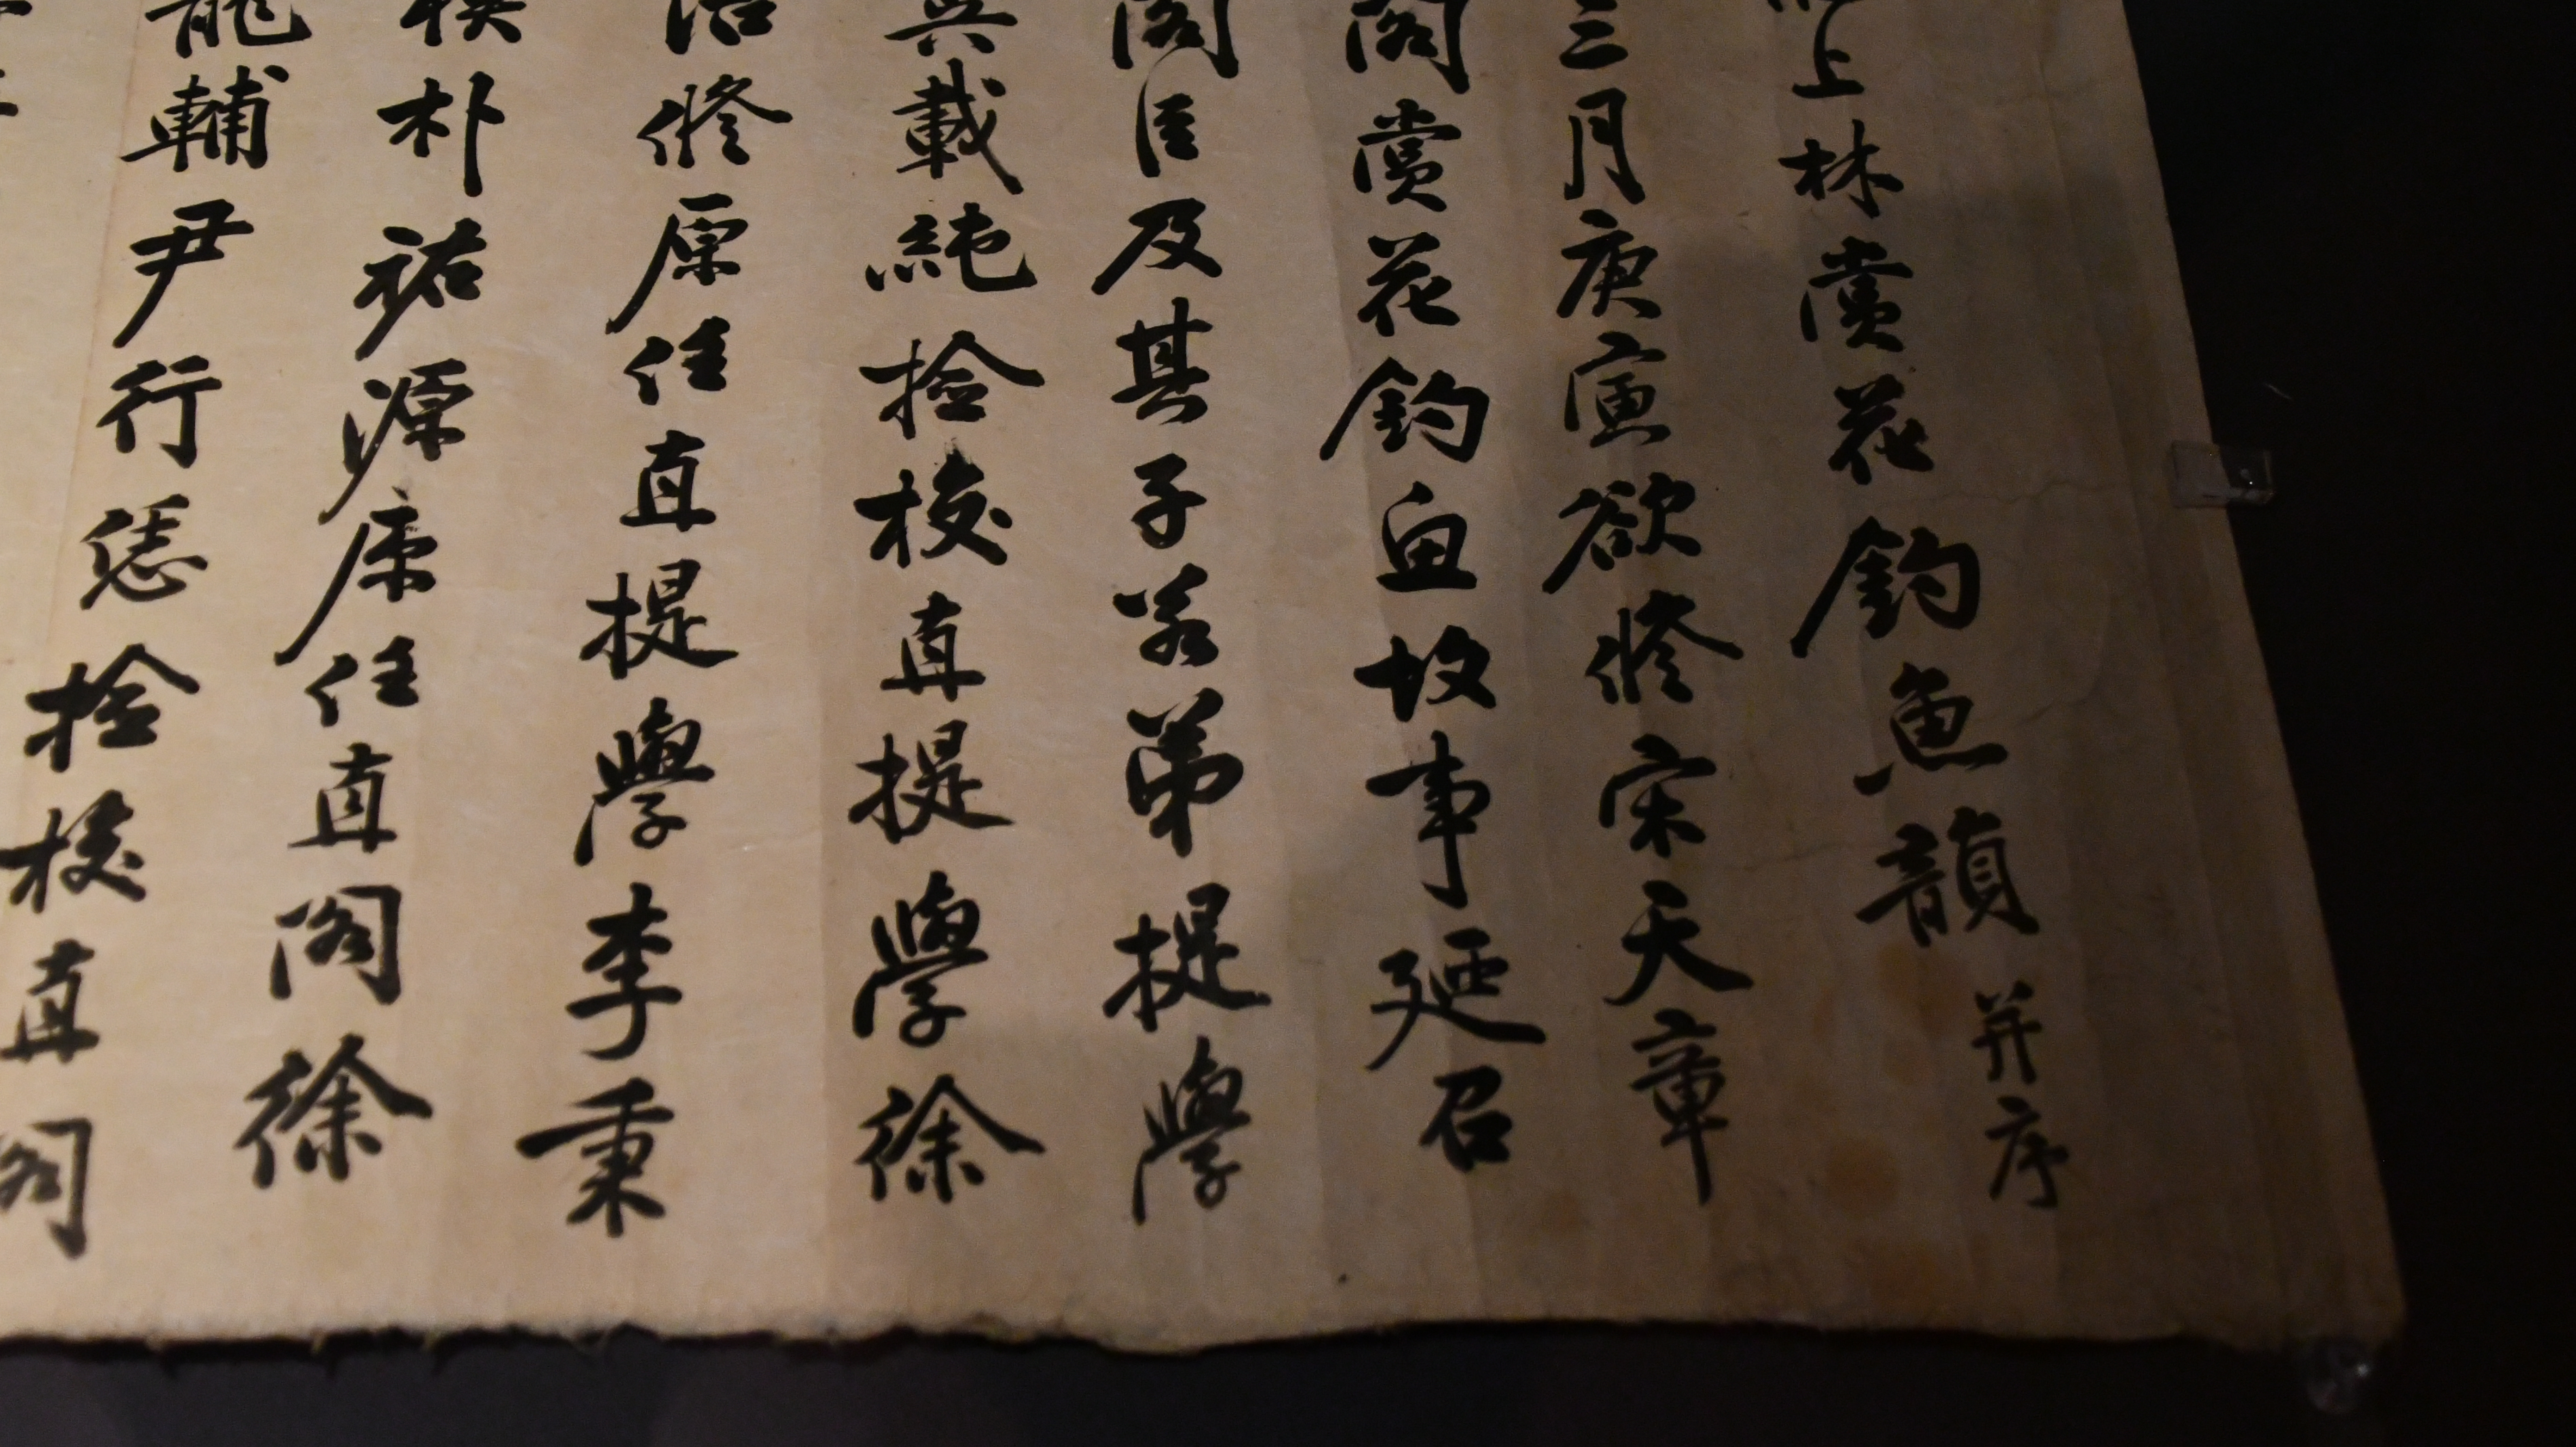 上林賞花釣魚韻 并序
三月庚寅欲修宋天章
閣賞花釣魚故事延召
閣臣及其子若弟提學
載純檢校直提學徐
浩修原任直提學李秉
模朴祐源原任直閣徐
龍輔尹行恁檢校直閣